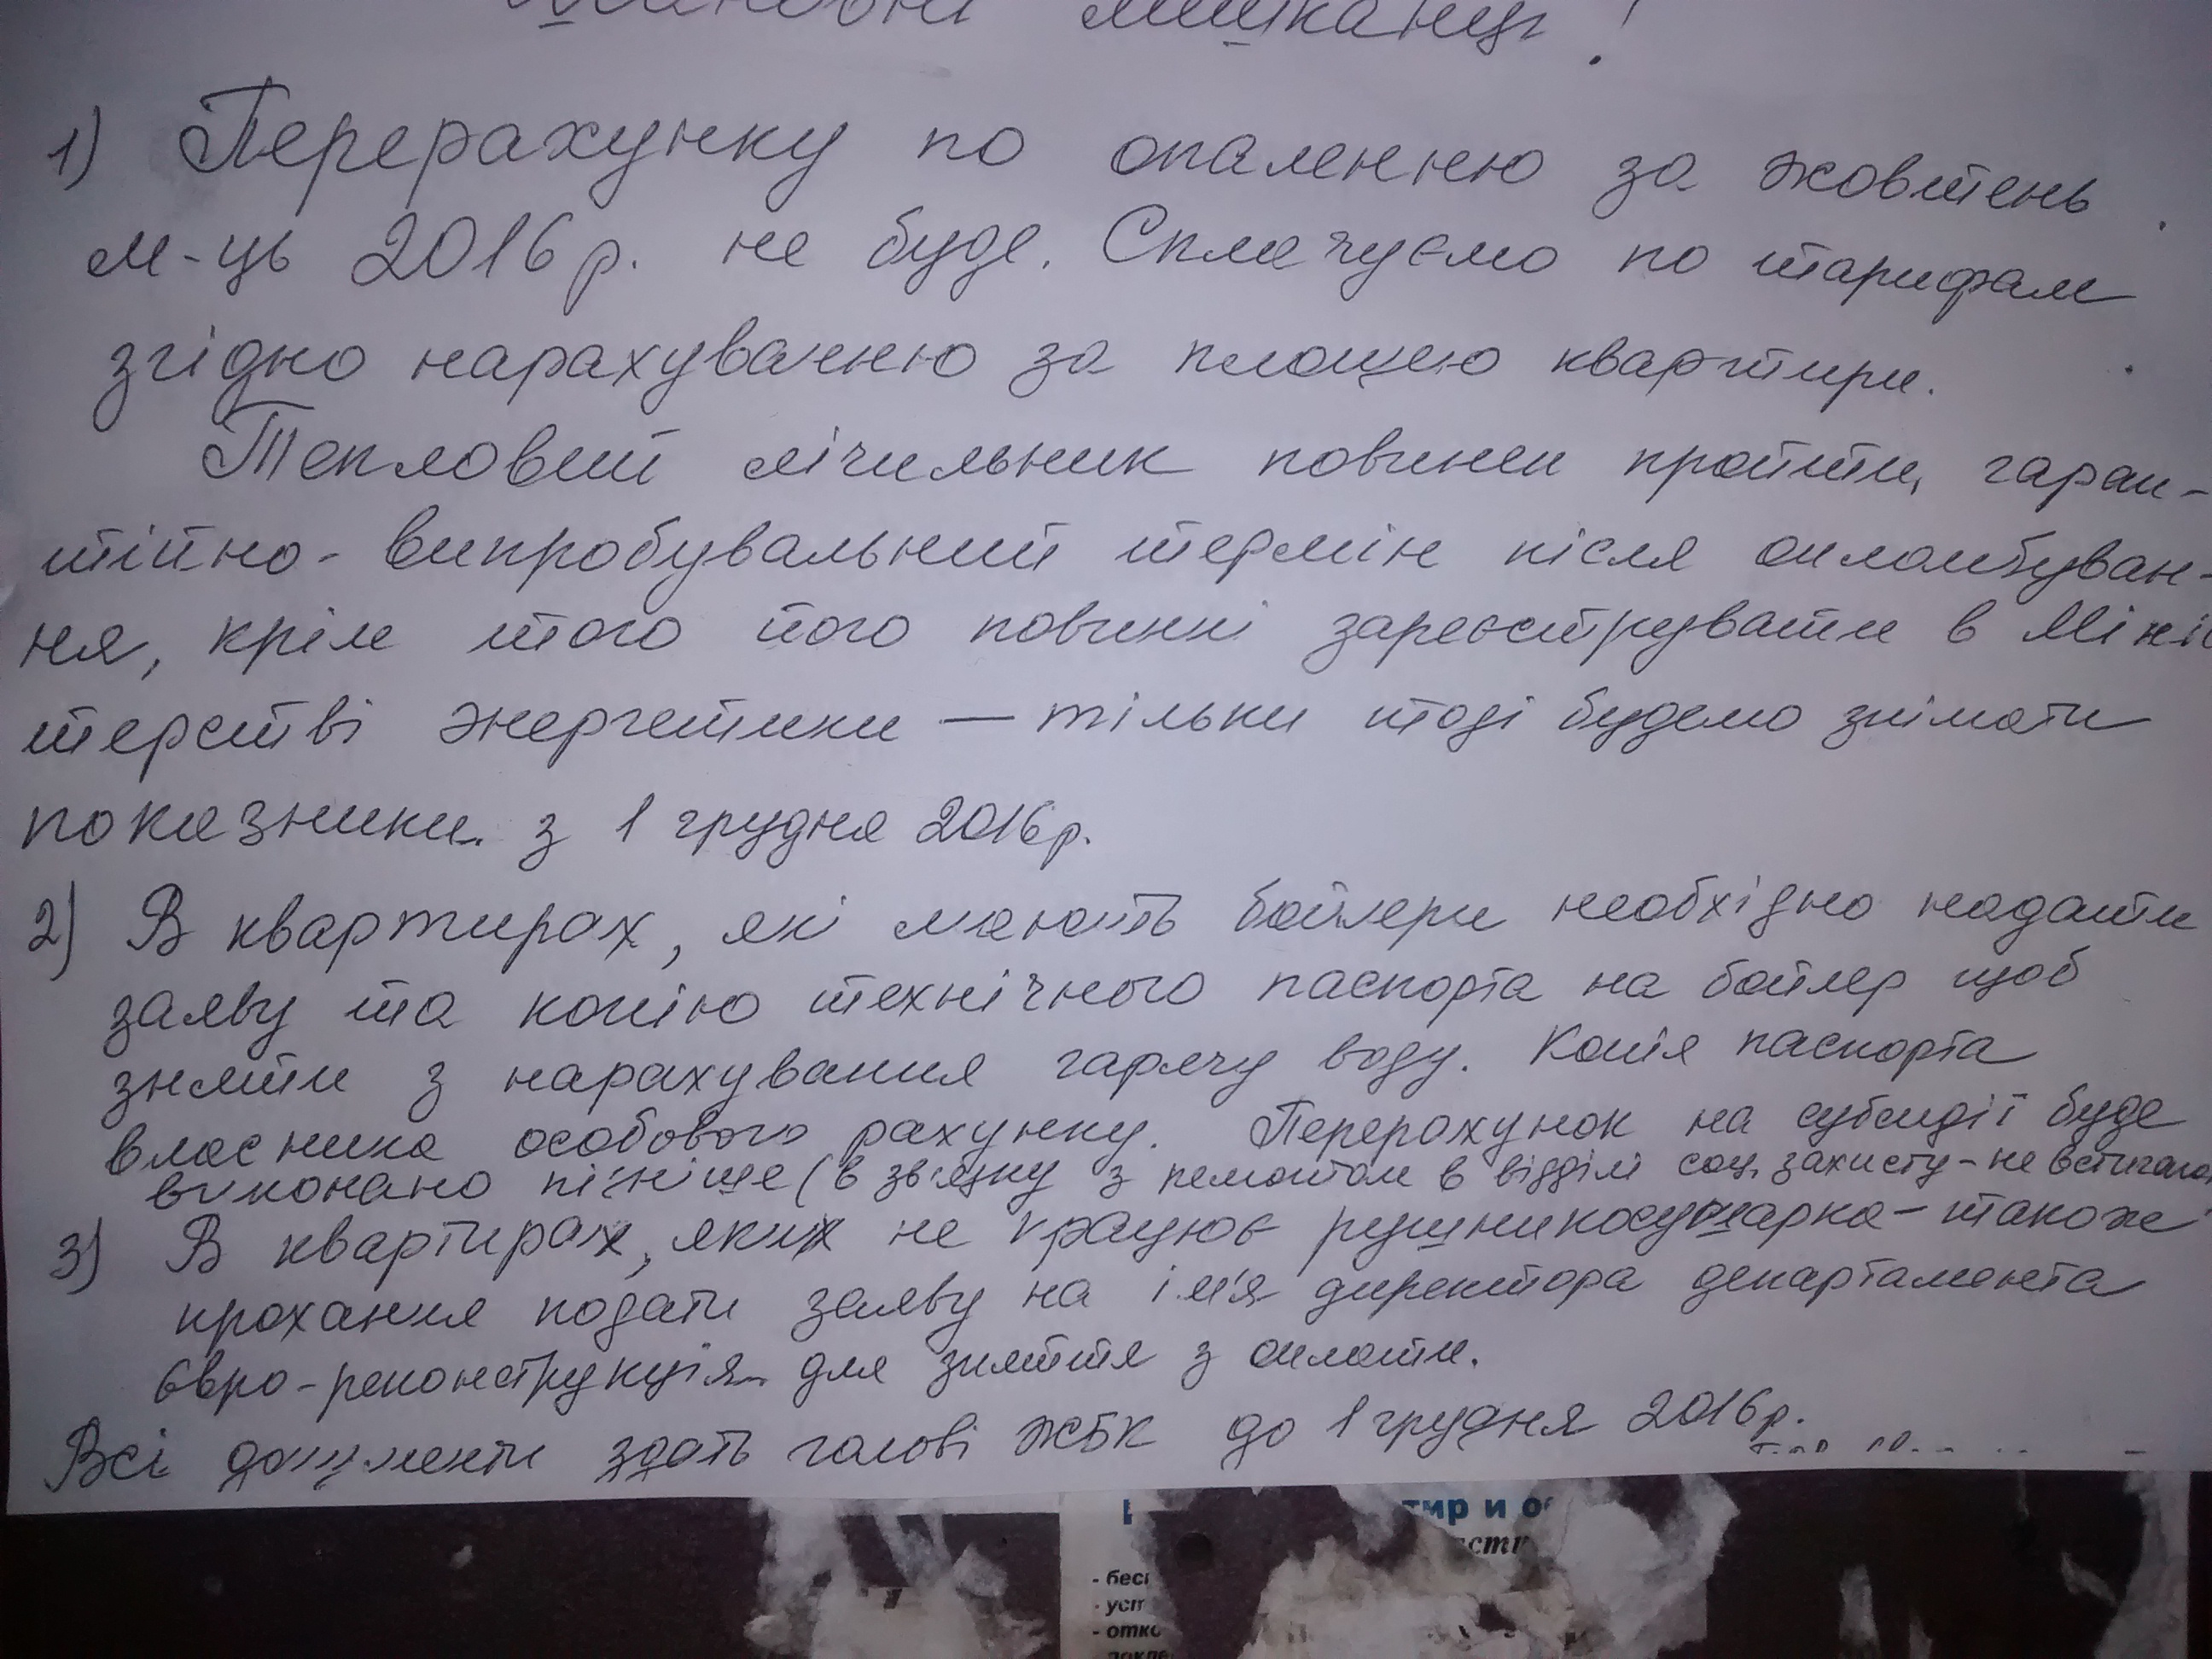 Шановні мешканці!
1) Перерахунку по опаленню за жовтень
м-ць 2016р. не буде. Сплачуємо по тарифам
згідно нарахуванню за площею квартири.
Тепловий лічильник повинен пройти, гаран-
тійно-випробувальний термін після опломбуван-
ня, крім того його повинні зареєструвати в Мініс
терстві энергетики — тільки тоді будемо знімати
показники. з 1 грудня 2016р.
2) В квартирах, які мають бойлери необхідно надати
заяву та копію технічного паспорта на бойлер щоб
зняти з нарахування гарячу воду. Копія паспорта
власника особового рахунку. Перерахунок на субсидії буде
виконано пізніше (в зв'язку з ремонтом в відділі соц. захисту - не встигали
3) В квартирах, яких не працює рушникосушарка - також
прохання подати заяву на ім'я директора департамента
Євро-реконструкція для зняття з оплати.
Всі документи здать голові ЖБК до 1 грудня 2016р.
тир и о
сти
- бес
- уст
- отко